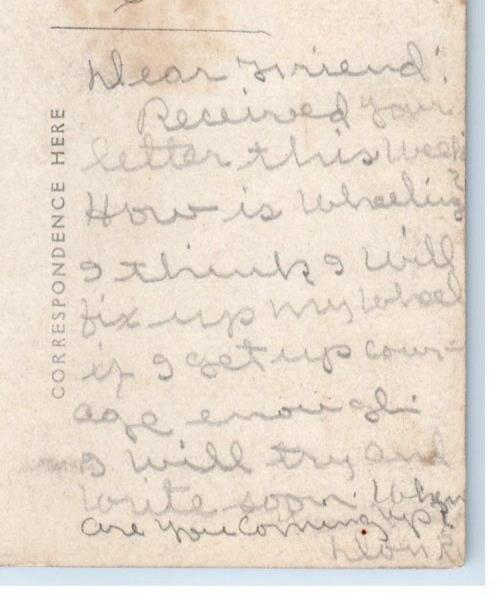 CORRESPONDENCE HERE
Dear Friend:
Received your
letter this week
How is Wheeling?
I think I will
fix up my wheel
if I get up cour-
age enough.
I will try and
write soon. When
are you coming up?